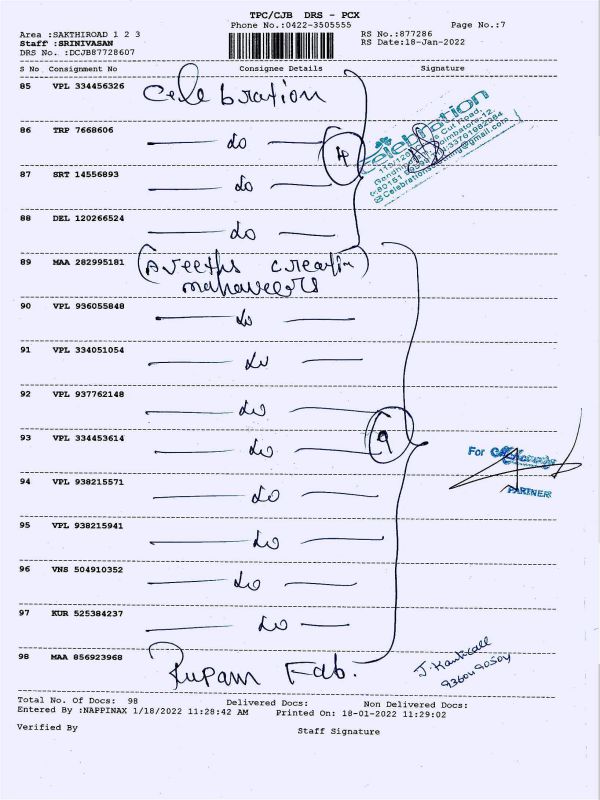 TPC/CJB DRS - PCX
Phone No.:0422-3505555 Page No.:7
Area :SAKTHIROAD 1 2 3 RS No.:877286
Staff :SRINIVASAN RS Date:18-Jan-2022
DRS No. :DCJB87728607
S No Consignment No Consignee Details Signature
85 VPL 334456326 Celebration
86 TRP 7668606 do
4
Celebration
87 SRT 14556893 do
88 DEL 120266524 do
89 MAA 282995181
90 VPL 936055848 do
91 VPL 334051054 do
92 VPL 937762148 do
93 VPL 334453614 do
9
For
PARTNER
94 VPL 938215571 do
95 VPL 938215941 do
96 VNS 504910352 do
97 KUR 525384237 do
98 MAA 856923968 Rupam Fab.
Total No. Of Docs: 98 Delivered Docs: Non Delivered Docs:
Entered By :NAPPINAX 1/18/2022 11:28:42 AM Printed On: 18-01-2022 11:29:02
Verified By Staff Signature